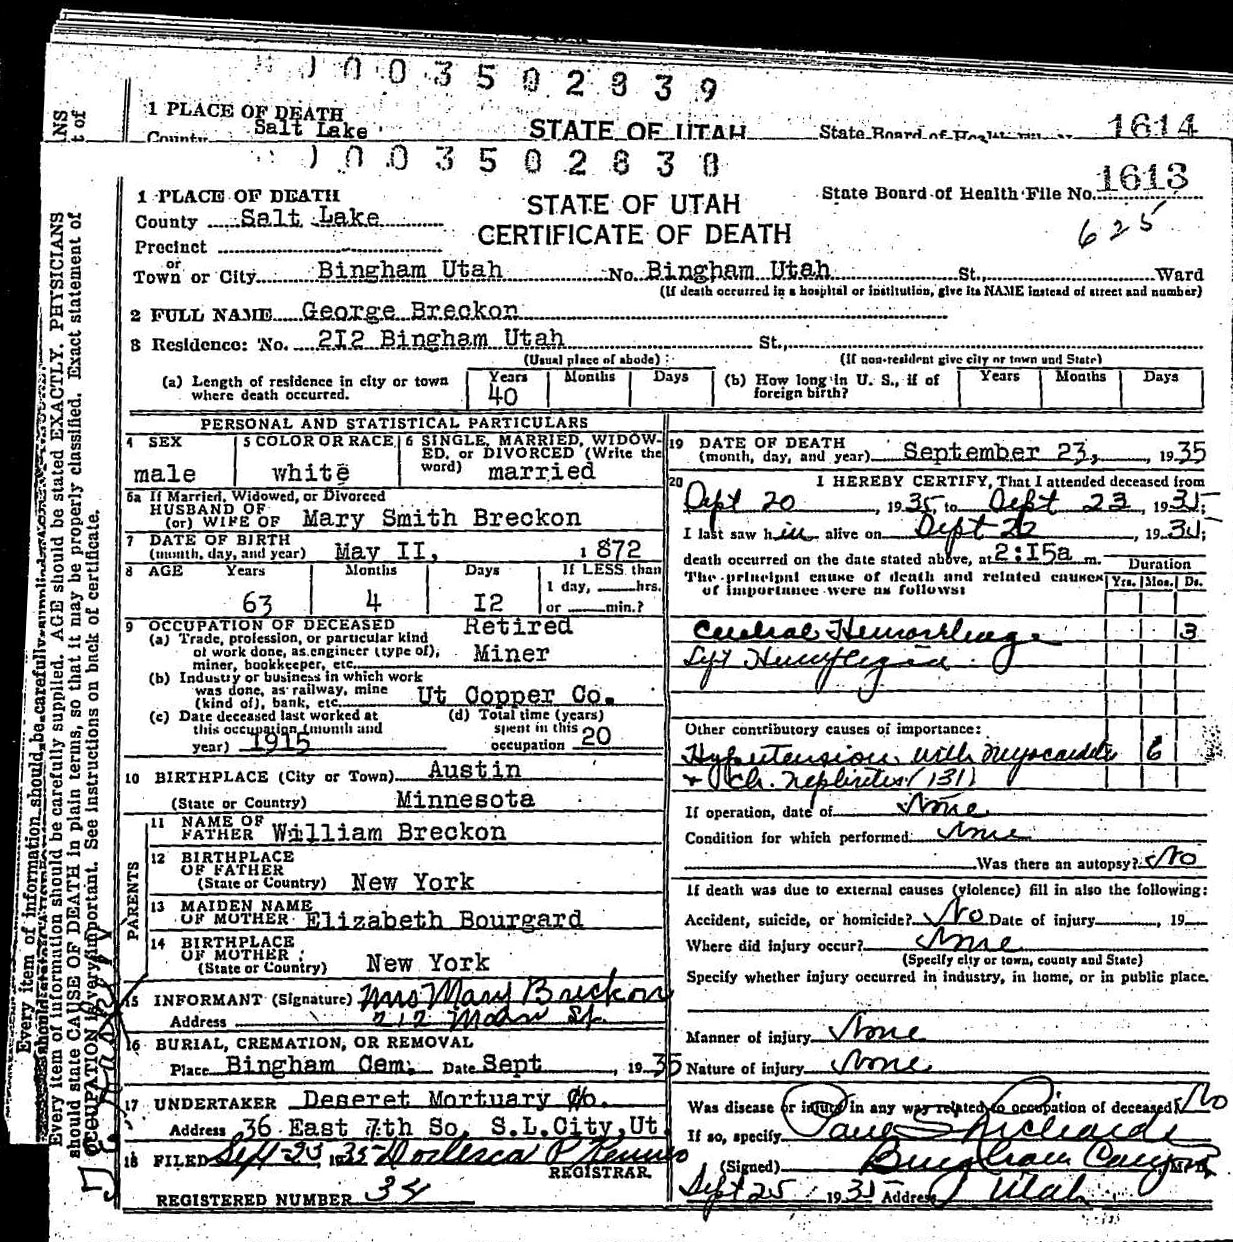 1003502839
1 PLACE OF DEATH
County Salt Lake STATE OF UTAH State Board of Health File No. 1614
1003502838
1 PLACE OF DEATH STATE OF UTAH State Board of Health File No. 1613
County Salt Lake CERTIFICATE OF DEATH 625
Precinct
or
Town or City Bingham Utah No. Bingham Utah St., Ward
(If death occurred in a hospital or institution, give its NAME instead of street and number)
2 FULL NAME George Breckon
3 Residence: No. 2I2 Bingham Utah St.,
(Usual place of abode) (If non-resident give city or town and State)
(a) Length of residence in city or town where death occurred. Years 40 Months Days (b) How long in U. S., if of foreign birth? Years Months Days
PERSONAL AND STATISTICAL PARTICULARS
4 SEX 5 COLOR OR RACE 6 SINGLE, MARRIED, WIDOW-
ED, or DIVORCED (Write the
word)
male white married
6a If Married, Widowed, or Divorced
HUSBAND OF
(or) WIFE OF Mary Smith Breckon
7 DATE OF BIRTH
(month, day, and year) May II, 1872
8 AGE Years Months Days If LESS than
1 day, hrs.
63 4 I2 or min.?
9 OCCUPATION OF DECEASED Retired
(a) Trade, profession, or particular kind
of work done, as engineer (type of), Miner
miner, bookkeeper, etc.
(b) Industry or business in which work
was done, as railway, mine
(kind of), bank, etc. Ut Copper Co.
(c) Date deceased last worked at (d) Total time (years)
this occupation (month and spent in this
year) 1915 occupation 20
10 BIRTHPLACE (City or Town) Austin
(State or Country) Minnesota
PARENTS
11 NAME OF
FATHER William Breckon
12 BIRTHPLACE
OF FATHER
(State or Country) New York
13 MAIDEN NAME
OF MOTHER Elizabeth Bourgard
14 BIRTHPLACE
OF MOTHER
(State or Country) New York
15 INFORMANT (Signature) Mrs Mary Breckon
Address 212 Main St.
16 BURIAL, CREMATION, OR REMOVAL
Place Bingham Cem. Date Sept , 1935
17 UNDERTAKER Deseret Mortuary Co.
Address 36 East 7th So. S.L.City,Ut
18 FILED Sept-25, 1935
REGISTRAR
REGISTERED NUMBER 34
19 DATE OF DEATH
(month, day, and year) September 23, , 1935
20 I HEREBY CERTIFY, That I attended deceased from
Sept 20 , 1935, to Sept 23 , 1935;
I last saw him alive on Sept 22 , 1935;
death occurred on the date stated above, at 2:I5a m.
The principal cause of death and related causes
of importance were as follows:
Duration
Yrs. Mos. Ds.
Cerebral Hemorrhage 3
Left Hemiplegia
Other contributory causes of importance:
Hypertension with Myocarditis 6
+ Ch. Nephritis (131)
If operation, date of None
Condition for which performed None
Was there an autopsy? No
If death was due to external causes (violence) fill in also the following:
Accident, suicide, or homicide? No Date of injury , 19
Where did injury occur? None
(Specify city or town, county and State)
Specify whether injury occurred in industry, in home, or in public place.
Manner of injury None
Nature of injury None
Was disease or injury in any way related to occupation of deceased? No
If so, specify
(Signed) Paul S Richards M.D.
Bingham Canyon
Sept 25 1935 Address Utah
Every item of information should be carefully supplied. AGE should be stated EXACTLY. PHYSICIANS
should state CAUSE OF DEATH in plain terms, so that it may be properly classified. Exact statement of
OCCUPATION is very important. See instructions on back of certificate.